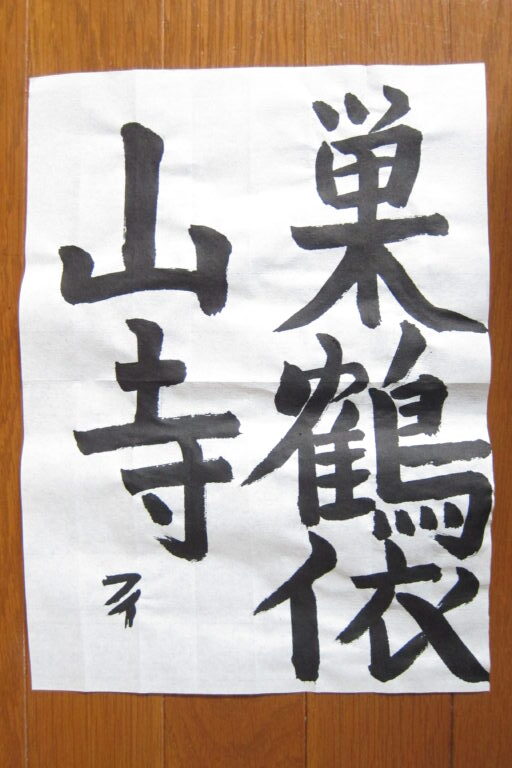 巣鶴依
山寺
フイ